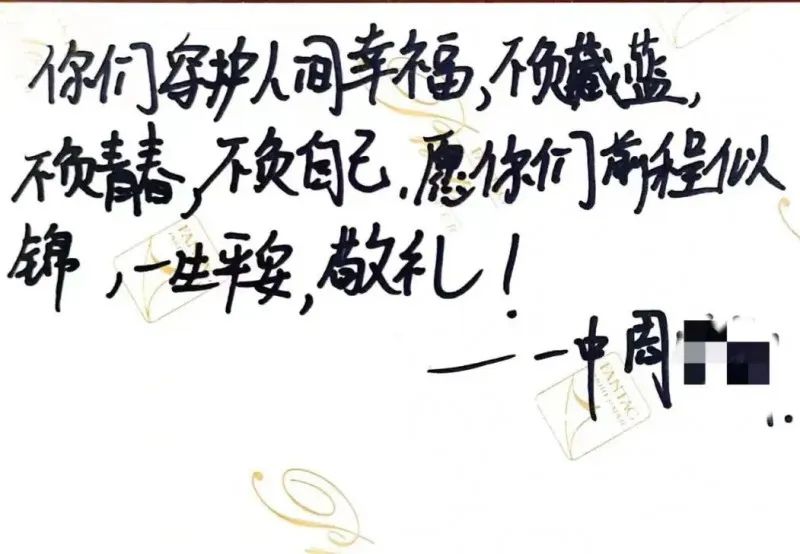 你们守护人间幸福,不负藏蓝,
不负青春,不负自己.愿你们前程似
锦,一生平安,敬礼!
——一中周
FANTAC
FANTAC